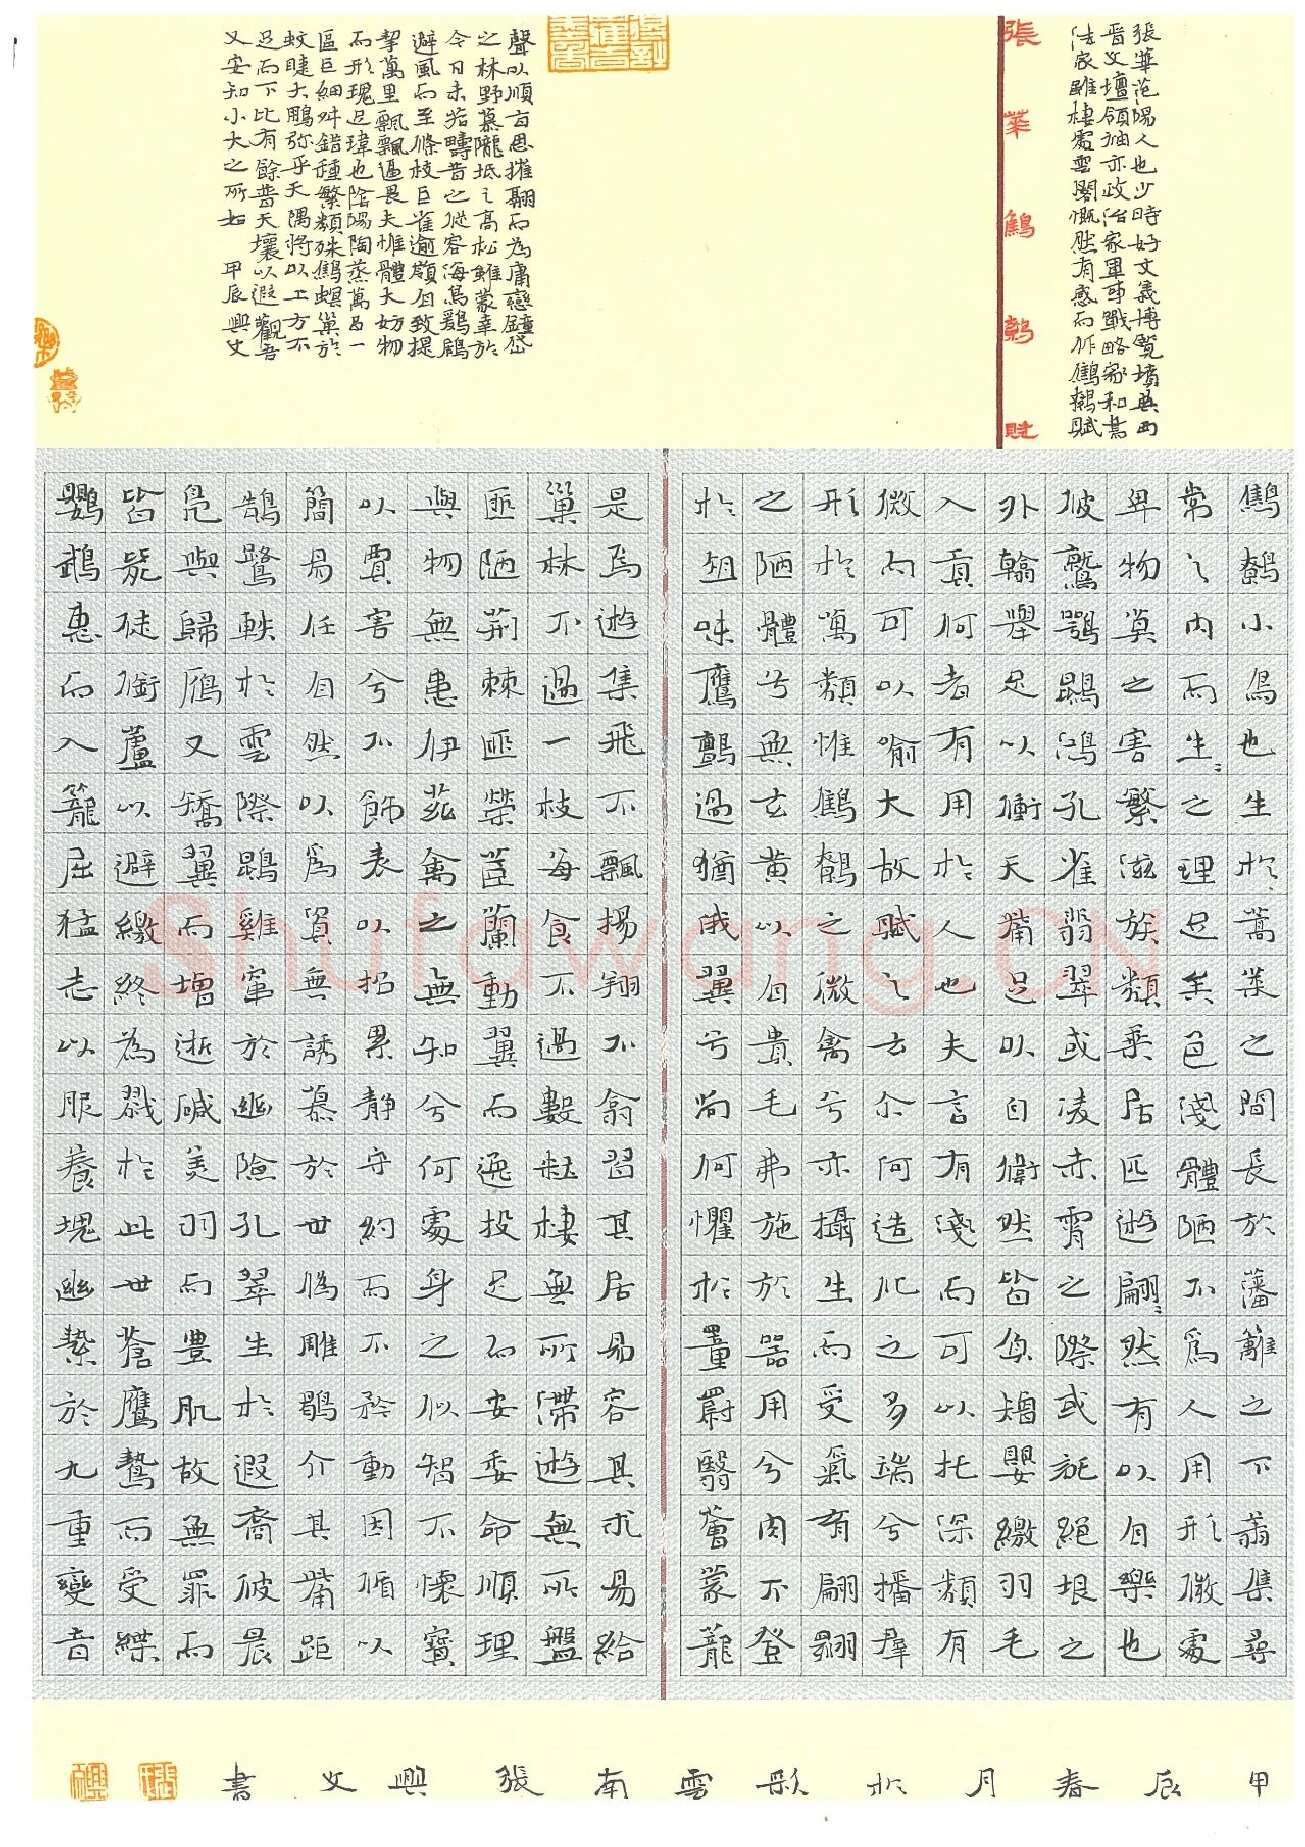 張華范陽人也少時好文義博覽墳典西
晉文壇領袖亦政治家軍事戰略家和書
法家雖棲處雲閣慨然有感而作鷦鷯賦
張華鷦鷯賦
鷦鷯小鳥也生於蒿萊之間長於藩籬之下翕集尋
常之內而生〻之理足矣色淺體陋不為人用形微處
卑物莫之害繁滋族類乘居匹遊翩〻然有以自樂也
彼鷲鶚鵾鴻孔雀翡翠或凌赤霄之際或託絕垠之
外翰舉足以衝天觜足以自衛然皆負矰嬰繳羽毛
入貢何者有用於人也夫言有淺而可以托深類有
微而可以喻大故賦之云尒何造化之多端兮播群
形於萬類惟鷦鷯之微禽兮亦攝生而受氣育翩翾
之陋體兮無玄黃以自貴毛弗施於器用兮肉不登
於俎味鷹鸇過猶俄翼兮尚何懼於罿罻翳薈蒙籠
是焉遊集飛不飄揚翔不翕習其居易容其求易給
巢林不過一枝每食不過數粒棲無所滯遊無所盤
匪陋荊棘匪榮茝蘭動翼而逸投足而安委命順理
與物無患伊茲禽之無知兮何處身之似智不懷寶
以賈害兮不飾表以招累靜守約而不矜動因循以
簡易任自然以為資無誘慕於世偽雕鶡介其觜距
鵠鷺軼於雲際鵾雞竄於幽險孔翠生於遐裔彼晨
鳧與歸雁又矯翼而增逝咸美羽而豐肌故無罪而
皆斃徒銜蘆以避繳終為戮於此世蒼鷹鷙而受緤
鸚鵡惠而入籠屈猛志以服養塊幽縶於九重變音
聲以順旨思摧翮而為庸戀鐘岱
之林野慕隴坻之高松雖蒙幸於
今日未若疇昔之從容海鳥鶢鶋
避風而至條枝巨雀逾嶺自致提
挈萬里飄飄逼畏夫惟體大妨物
而形瑰足瑋也陰陽陶蒸萬品一
區巨細舛錯種繁類殊鷦螟巢於
蚊睫大鵬弥乎天隅將以上方不
足而下比有餘普天壤以遐觀吾
又安知小大之所如 甲辰興文
甲辰春月於彩雲南張興文書
Shufawang.CN